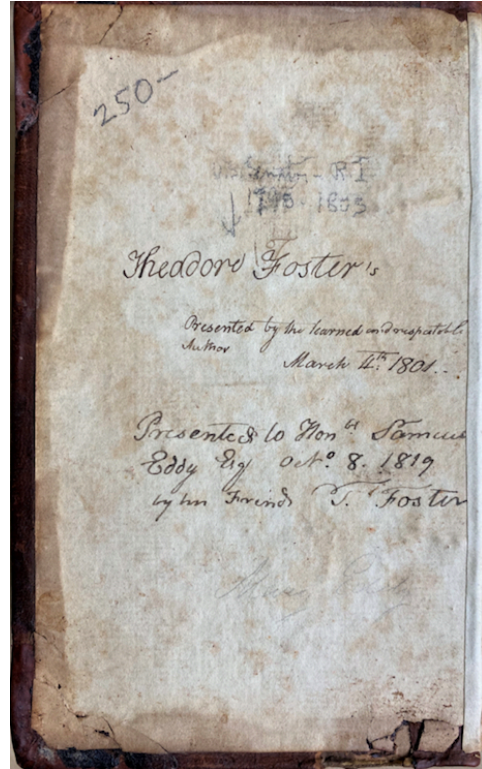 250-
Senator - R I
1790 - 1803
Theodore Foster's
Presented by the learned and respectable
Author
March 4th. 1801.
Presented to Honble Samuel
Eddy Esq Octo. 8. 1819
by his Friend T. Foster